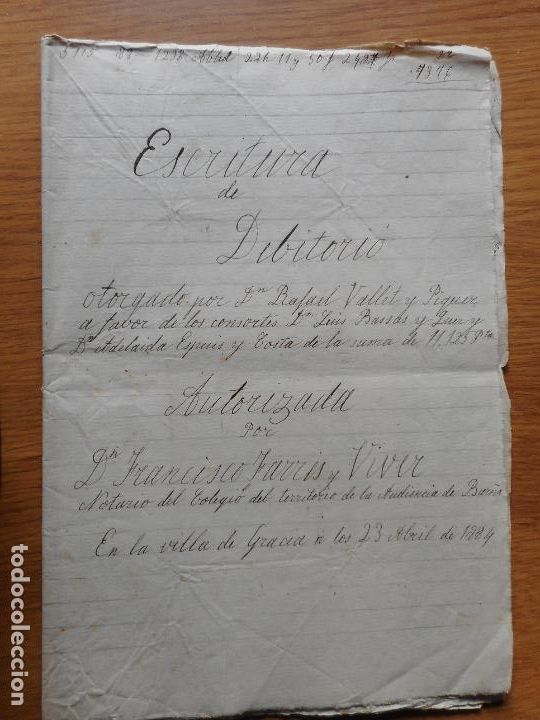 Abril 226 11 y 30
Escritura
de
Debitorio
otorgado por Dn Rafael Vallet y Piquer
a favor de los consortes Dn Luis Bassas y y
Da Adelaida y Costa de la suma de 11,125 Ptas
Autorizada
Por
Dn Francisco Farrés y Viver
Notario del Colegio del territorio de la Audiencia de Barna
En la villa de Gracia a los 23 Abril de 1889
todocoleccion